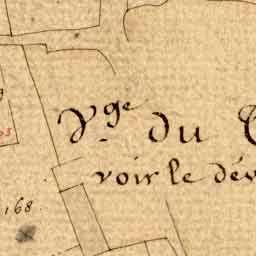 V.ge du
voir le dév
168.